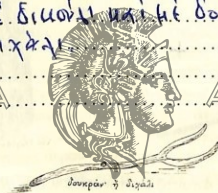 δικούλι καὶ μὲ δο
ιχάλι.
δουκράν' ἢ διχάλι